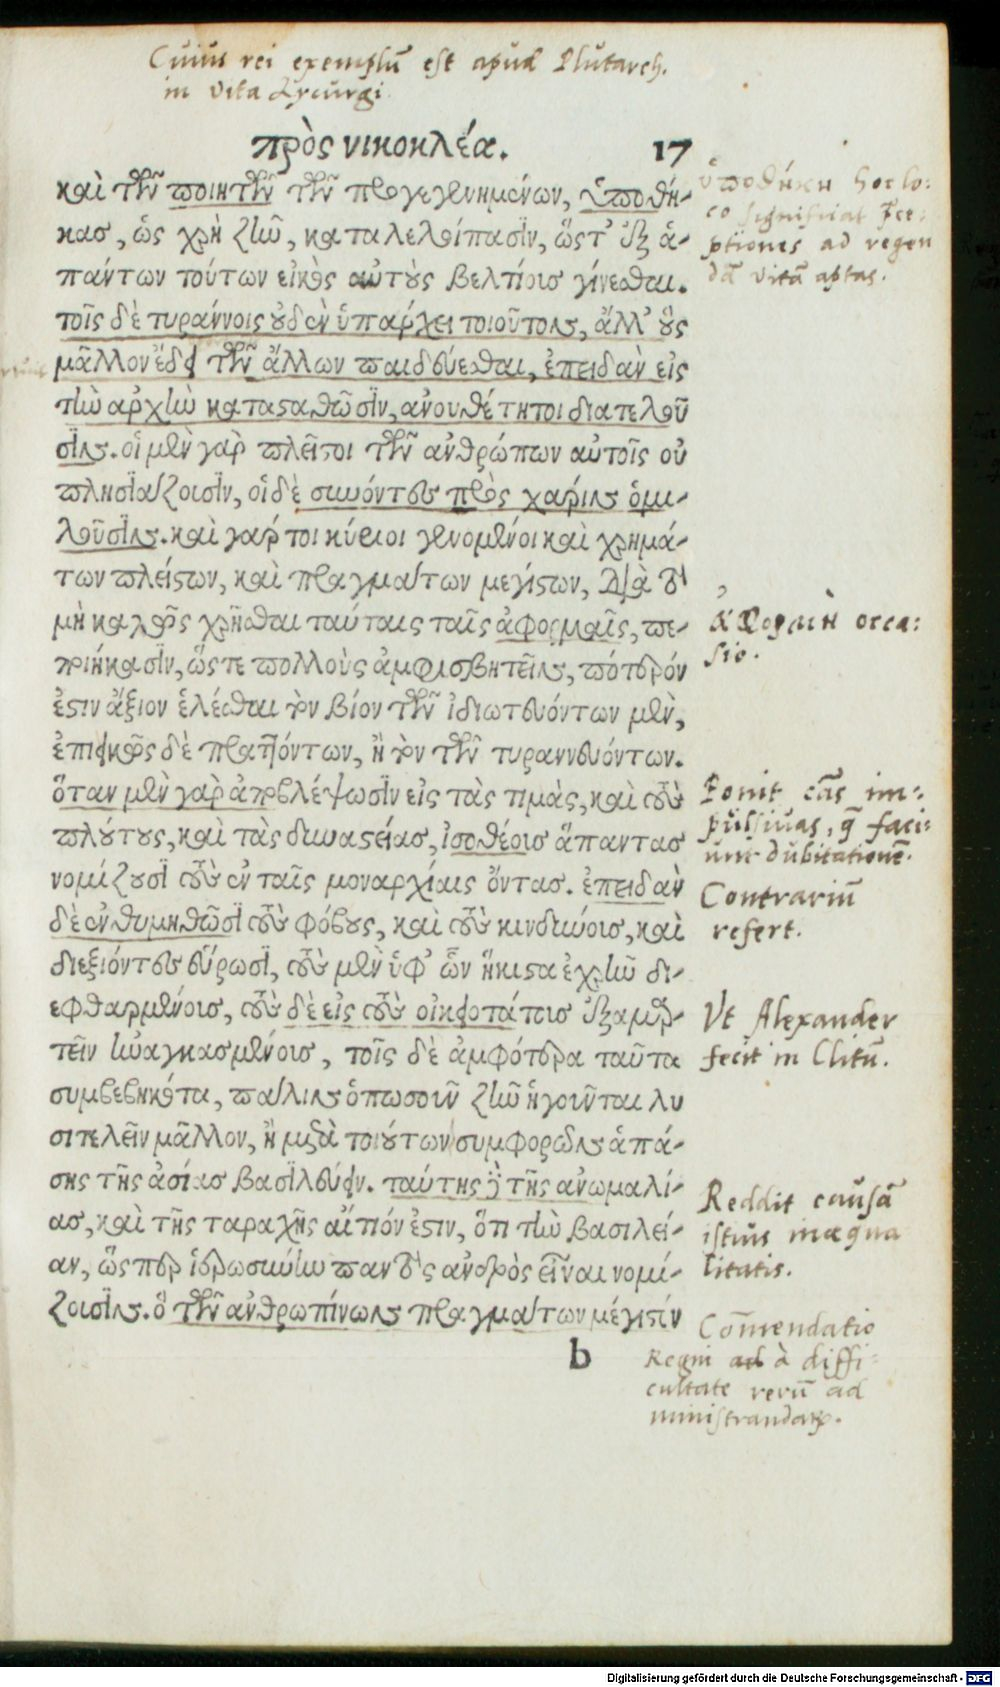 Cuius rei exemplū est apud Plutarch.
in vita Lycurgi.
πρὸς νικοκλέα. 17
καὶ τῶν ποιητῶν τῶν προγεγενημένων, ὑποθή-
κας, ὡς χρὴ ζῆν, καταλελοίπασιν, ὥστ' ἐξ ἁ-
πάντων τούτων εἰκὸς αὐτοὺς βελτίους γίνεσθαι.
τοῖς δὲ τυράννοις οὐδὲν ὑπάρχει τοιοῦτον, ἀλλ' οὓς
μᾶλλον ἔδει τῶν ἄλλων παιδεύεσθαι, ἐπειδὰν εἰς
τὴν ἀρχὴν κατασταθῶσιν, ἀνουθέτητοι διατελοῦ
σιν. οἱ μὲν γὰρ πλεῖστοι τῶν ἀνθρώπων αὐτοῖς οὐ
πλησιάζουσιν, οἱ δὲ συνόντες πρὸς χάριν ὁμι-
λοῦσιν. καὶ γάρ τοι κύριοι γενομένοι καὶ χρημά-
των πλείστων, καὶ πραγμάτων μεγίστων, διὰ τὸ
μὴ καλῶς χρῆσθαι ταύταις ταῖς ἀφορμαῖς, πε-
ποιήκασιν, ὥστε πολλοὺς ἀμφισβητεῖν, πότερόν
ἐστιν ἄξιον ἑλέσθαι τὸν βίον τῶν ἰδιωτευόντων μὲν,
ἐπιεικῶς δὲ πραττόντων, ἢ τὸν τῶν τυραννευόντων.
ὅταν μὲν γὰρ ἀποβλέψωσιν εἰς τὰς τιμὰς, καὶ τοὺς
πλούτους, καὶ τὰς δυναστείας, ἰσοθέους ἅπαντας
νομίζουσι τοὺς ἐν ταῖς μοναρχίαις ὄντας. ἐπειδὰν
δὲ ἐνθυμηθῶσι τοὺς φόβους, καὶ τοὺς κινδύνους, καὶ
διεξιόντες εὕρωσι, τοὺς μὲν ὑφ' ὧν ἥκιστα ἐχρῆν δι-
εφθαρμένους, τοὺς δὲ εἰς τοὺς οἰκειοτάτους ἐξαμαρ-
τεῖν ἠναγκασμένους, τοῖς δὲ ἀμφότερα ταῦτα
συμβεβηκότα, πάλιν ὁπωσοῦν ζῆν ἡγοῦνται λυ
σιτελεῖν μᾶλλον, ἢ μετὰ τοιούτων συμφορῶν ἁπά-
σης τῆς ἀσίας βασιλεύειν. ταύτης δὲ τῆς ἀνωμαλί-
ας, καὶ τῆς ταραχῆς αἴτιόν ἐστιν, ὅτι τὴν βασιλεί-
αν, ὥσπερ ἱερωσύνην παντὸς ἀνδρὸς εἶναι νομί-
ζουσιν. ὃ τῶν ἀνθρωπίνων πραγμάτων μέγιστόν
b
ὑποθήκη hoc lo:
co significat p̄ce:
ptiones ad regen
dā vitā aptas.
ἀφορμὴ occa:
sio.
Ponit cās im-
pulsivas, q̄ faci:
unt dubitationē.
Contrariū
refert.
Ut Alexander
fecit in Clitū.
Reddit causā
istius inæqua
litatis.
Com̄endatio
Regni ad à diffi-
cultate rerū ad
ministrandaꝝ.
Digitalisierung gefördert durch die Deutsche Forschungsgemeinschaft - DFG